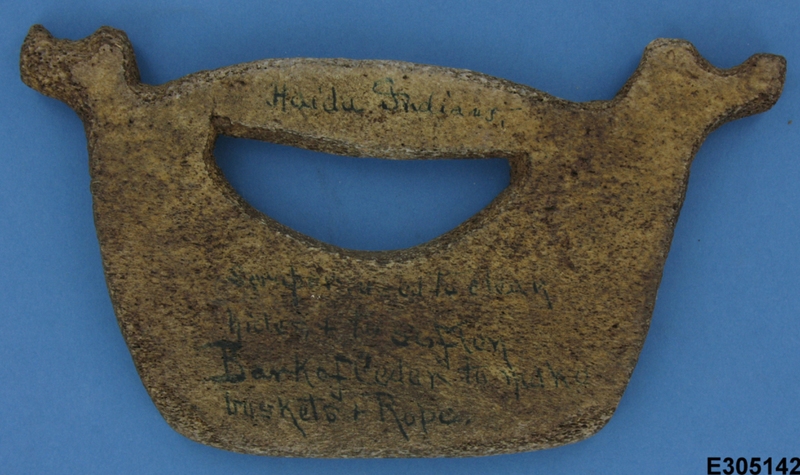 Haida Indians.
scraper used to clean
hides + to soften
Bark of Ceder to make
baskets + Rope.
E305142